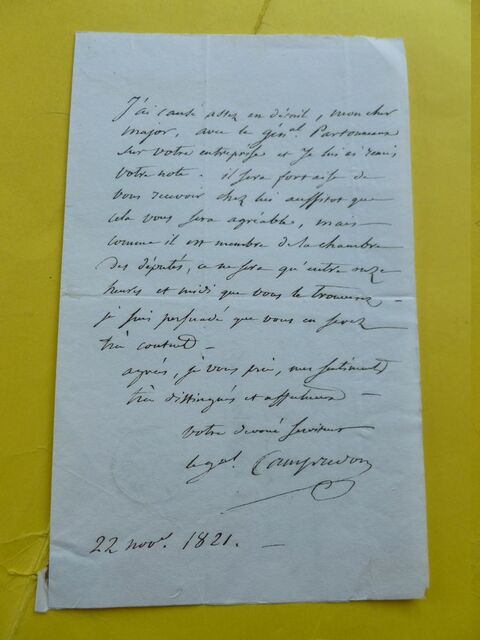 J'ai causé assez en détail, mon cher
major, avec le gén.al Partouneaux
sur votre entreprise et je lui ai remis
votre note. il sera fort aise de
vous recevoir chez lui aussitot que
cela vous sera agréable, mais
comme il est membre de la chambre
des députés, ce ne sera qu'entre onze
heures et midi que vous le trouverez -
je suis persuadé que vous en serez
très content -
agréez, je vous prie, mes sentiments
très distingués et affectueux -
votre devoué serviteur
le gal. Campredon
22 nov.e 1821. -